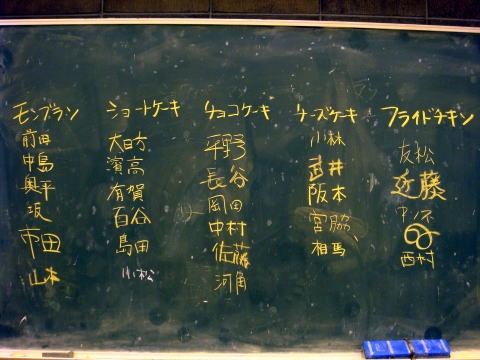 モンブラン
前田
中島
奥平
坂
市田
山本
ショートケーキ
大日方
濱高
有賀
百谷
島田
小松
チョコケーキ
平野
長谷
岡田
中村
佐藤
河角
チーズケーキ
小林
武井
阪本
宮脇
相馬
フライドチキン
友松
近藤
西村